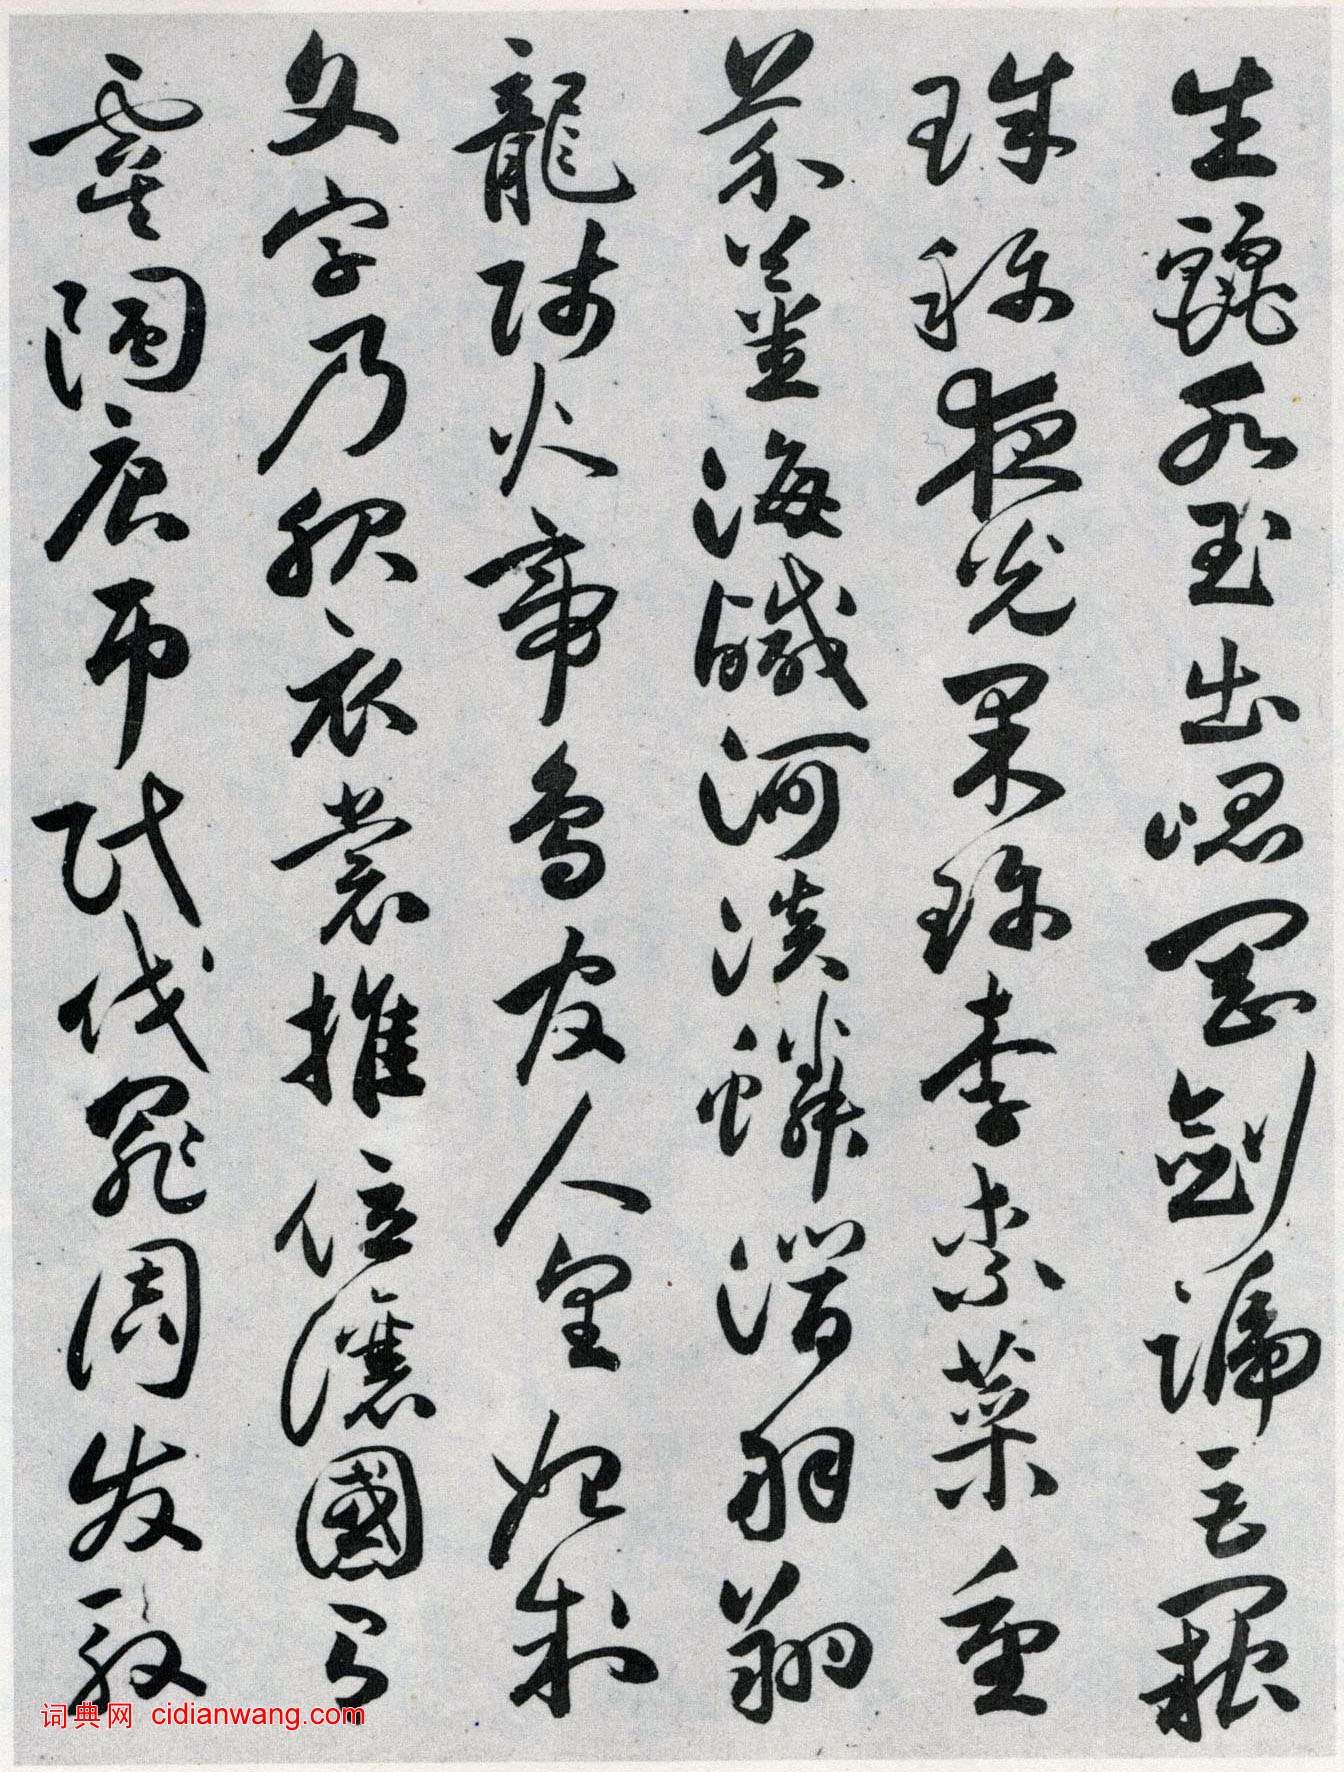 生麗水玉出崐岡劍號巨闕
珠稱夜光果珍李柰菜重
芥薑海鹹河淡鱗潛羽翔
龍師火帝鳥官人皇始制
文字乃服衣裳推位讓國有
虞陶唐弔民伐罪周發殷
词典网 cidianwang.com